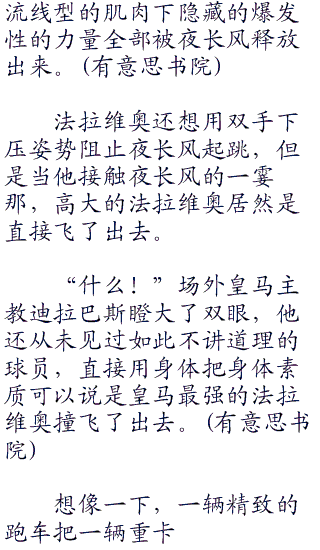 流线型的肌肉下隐藏的爆发
性的力量全部被夜长风释放
出来。(有意思书院)
法拉维奥还想用双手下
压姿势阻止夜长风起跳，但
是当他接触夜长风的一霎
那，高大的法拉维奥居然是
直接飞了出去。
“什么！”场外皇马主
教迪拉巴斯瞪大了双眼，他
还从未见过如此不讲道理的
球员，直接用身体把身体素
质可以说是皇马最强的法拉
维奥撞飞了出去。(有意思书
院)
想像一下，一辆精致的
跑车把一辆重卡